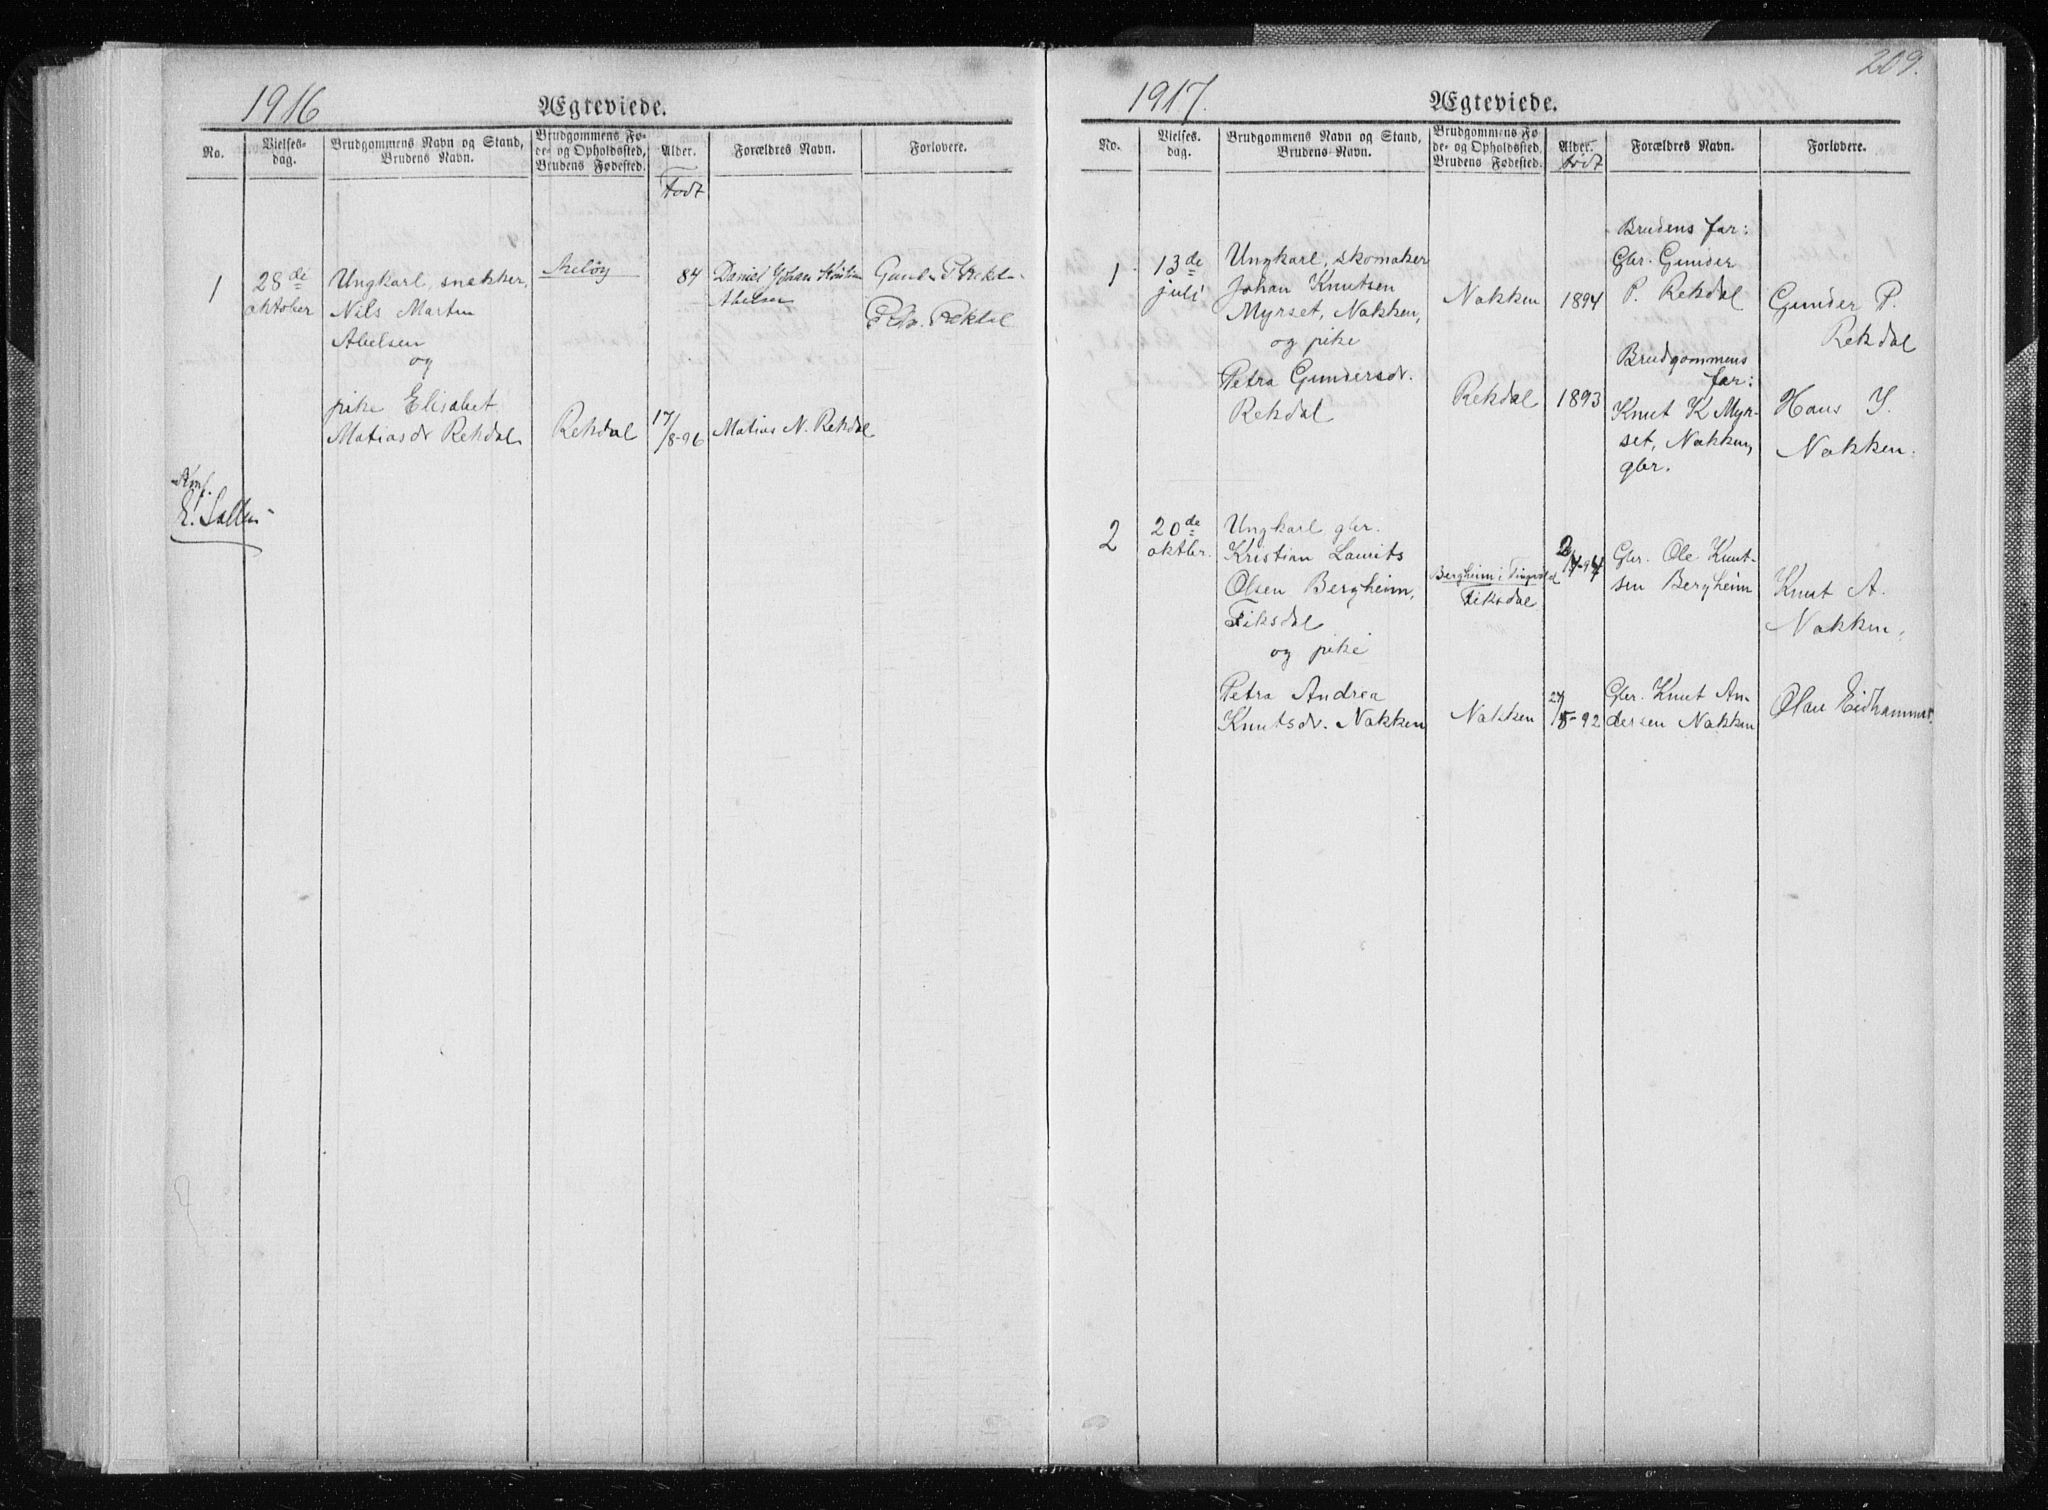 1916
Ægteviede.
No.
Vielses-
dag.
Brudgommens Navn og Stand,
Brudens Navn.
Brudgommens Fø-
de- og Opholdssted,
Brudens Fødested.
Alder.
Født
Forældres Navn.
Forlovere.
1
28de
oktober
Ungkarl, snekker,
Nils Martin
Abelsen
og
pike Elisabet
Matiasdr Rekdal
Rekdal
84
17/8-96
Daniel Johan Kristian
Abelsen
Matias N. Rekdal
P. Rekdal
Rekdal
Konf.
209.
1917.
Ægteviede.
No.
Vielses-
dag.
Brudgommens Navn og Stand,
Brudens Navn.
Brudgommens Fø
de- og Opholdssted,
Brudens Fødested.
Alder.
Født
Forældres Navn.
Forlovere.
1
13de
juli
Ungkarl, skomaker
Johan Knutsen
Myrset, Nakken,
og pike
Petra Gundersdr.
Rekdal
Nakken
Rekdal
1894
1893
Brudens far:
Gbr. Gunder
P. Rekdal
Brudgommens
far:
Knut K Myr-
set, Nakken,
gbr.
Gunder P.
Rekdal
Hans I.
Nakken.
2
20de
oktbr.
Ungkarl gbr.
Kristian Laurits
Olsen Bergheim,
Fiksdal
og pike
Petra Andrea
Knutsdr. Nakken
Bergheim i Tingvold
Fiksdal
Nakken
27/5-92
Gbr. Ole Knut-
sen Bergheim
Gbr. Knut An
dersen Nakken
Knut A.
Nakken,
Olav Eidhammer.